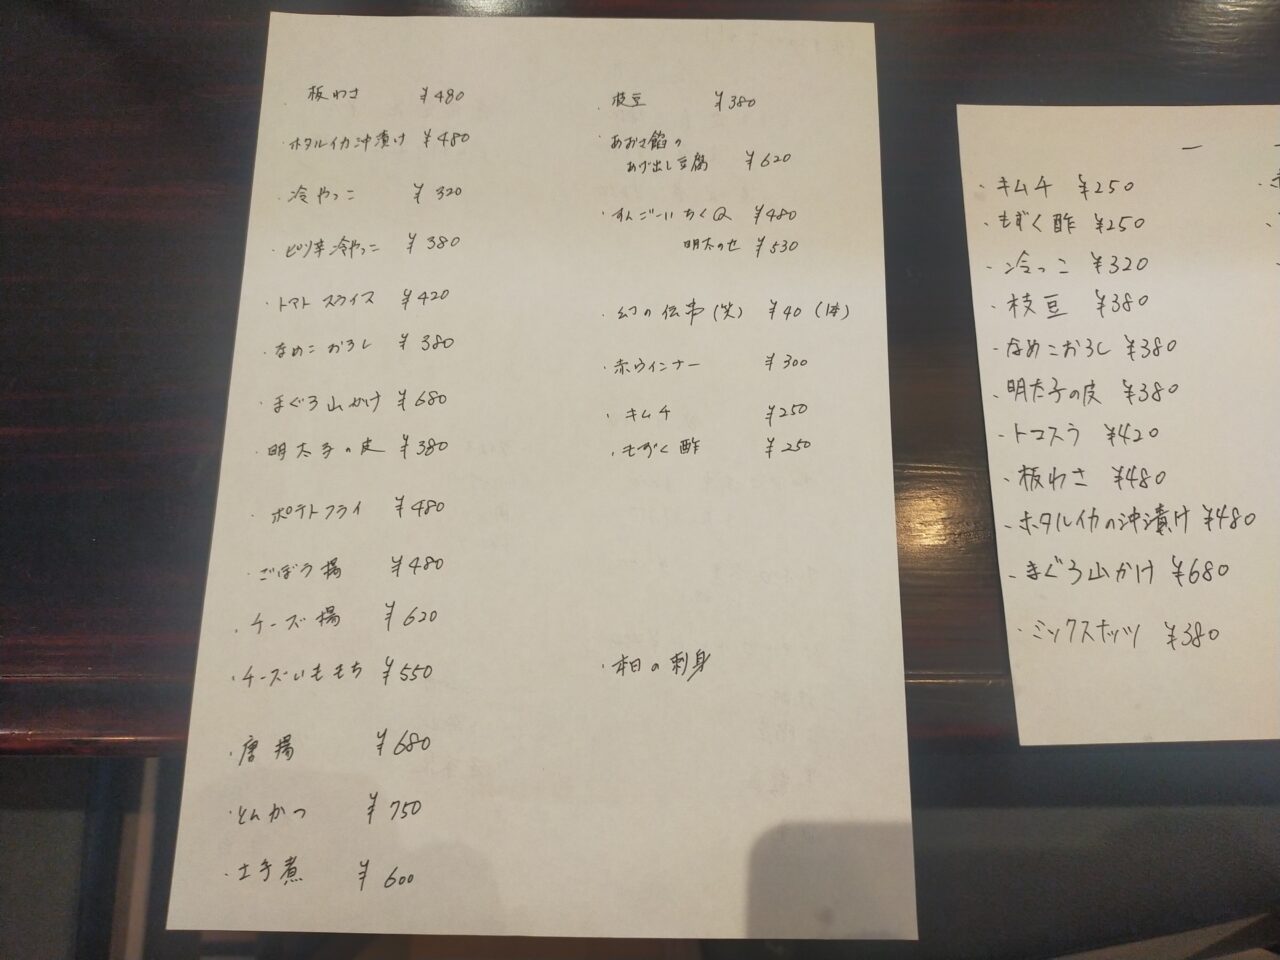 ・板わさ ¥480
・ホタルイカ沖漬け ¥480
・冷やっこ ¥320
・ピリ辛冷やっこ ¥380
・トマトスライス ¥420
・なめこおろし ¥380
・まぐろ山かけ ¥680
・明太子の皮 ¥380
・ポテトフライ ¥480
・ごぼう揚 ¥480
・チーズ揚 ¥620
・チーズいももち ¥550
・唐揚 ¥680
・とんかつ ¥750
・土手煮 ¥600
・枝豆 ¥380
・あおさ餡の
あげ出し豆腐 ¥620
・すんごーいちくQ ¥480
明太のせ ¥530
・幻の伝串(笑) ¥40 (1本)
・赤ウインナー ¥300
・キムチ ¥250
・もずく酢 ¥250
・本日の刺身
・キムチ ¥250
・もずく酢 ¥250
・冷っこ ¥320
・枝豆 ¥380
・なめこおろし ¥380
・明太子の皮 ¥380
・トマスラ ¥420
・板わさ ¥480
・ホタルイカの沖漬け ¥480
・まぐろ山かけ ¥680
・ミックスナッツ ¥380